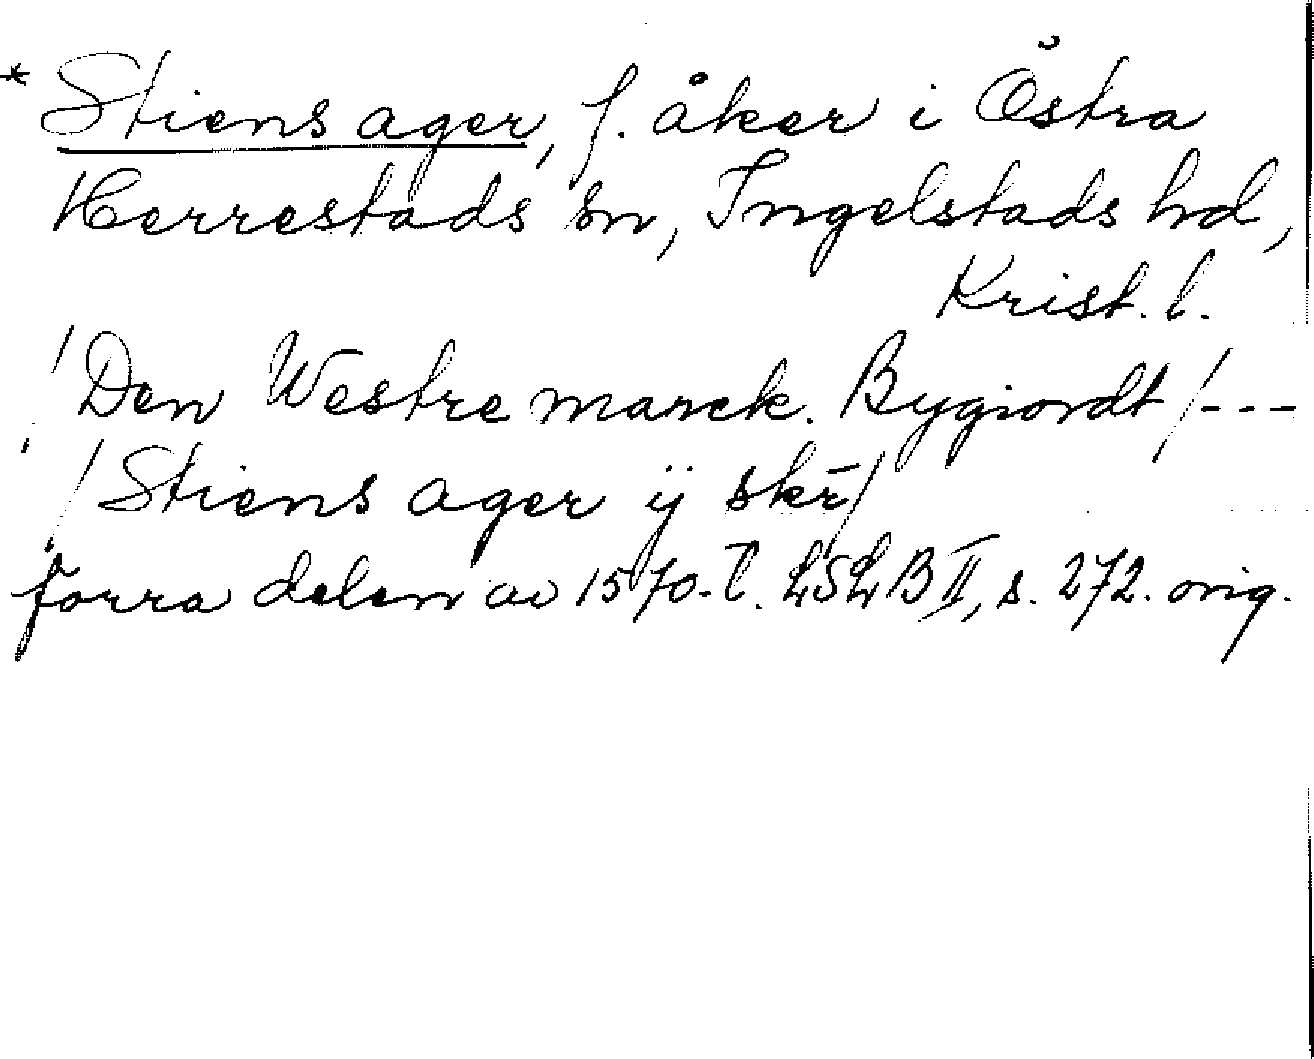 * Stiens ager, f. åker i Östra
Herrestads sn, Ingelstads hd,
Krist. l.
/Den Westre marck. Bygiordt/---
/Stiens ager ij skr̄/
förra delen av 1570-t. LSLB II, s. 272. orig.